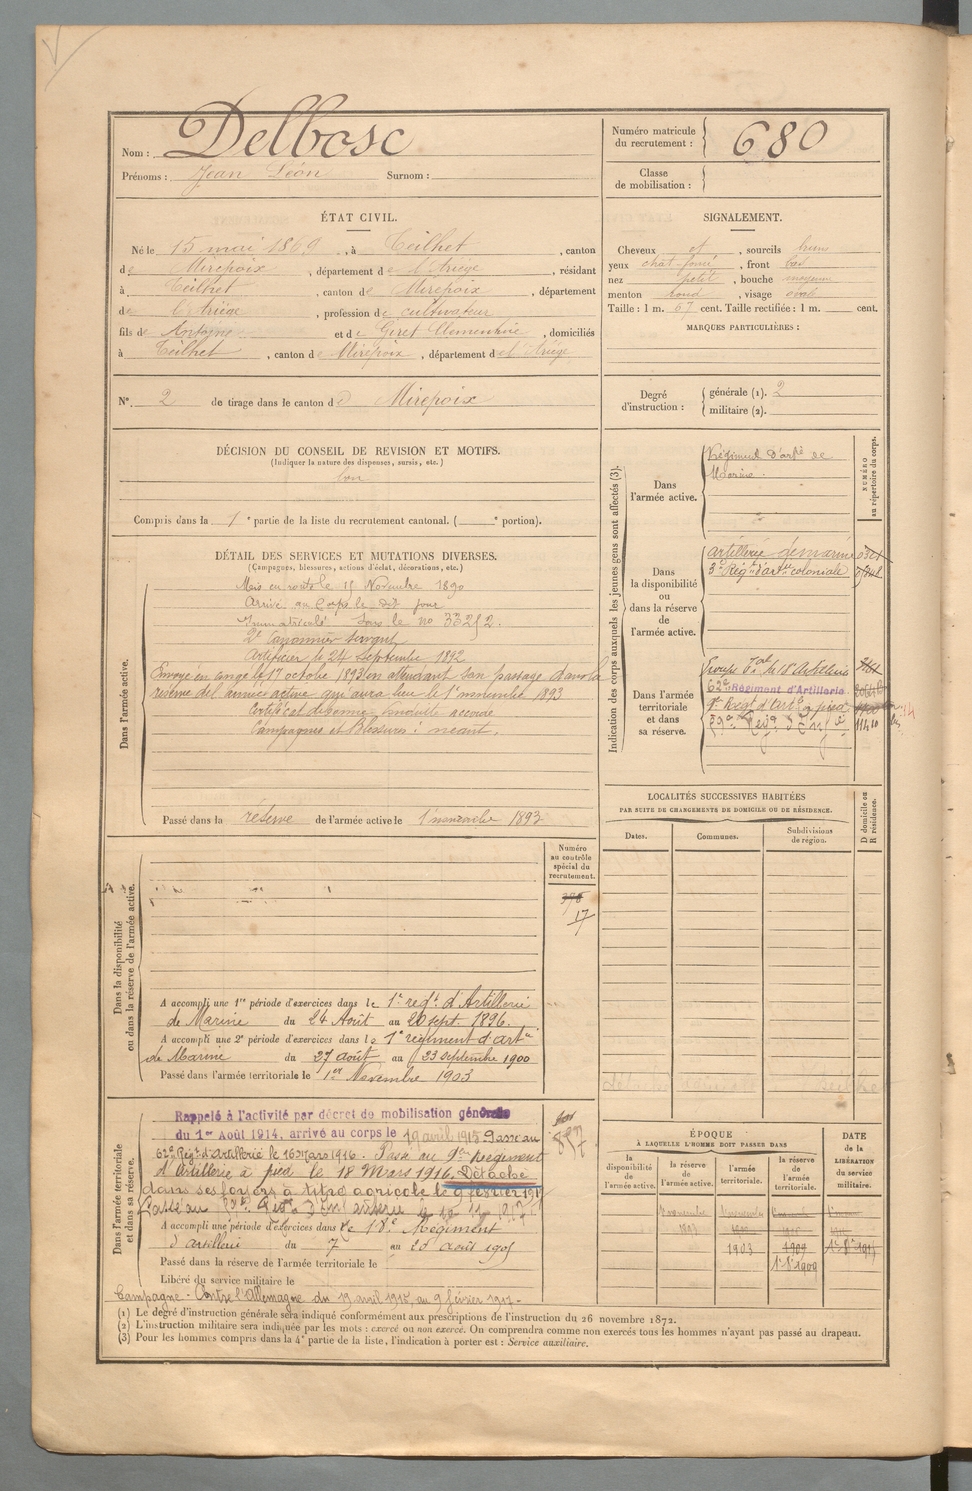 Nom : Delbosc
Prénoms : Jean Léon Surnom :
Numéro matricule du recrutement : 680
Classe de mobilisation :
ÉTAT CIVIL.
Né le 15 mai 1869, à Teilhet, canton
de Mirepoix, département de l'Ariège, résidant
à Teilhet, canton de Mirepoix, département
de l'Ariège, profession de cultivateur
fils de Antoine et de Giret Clémentine, domiciliés
à Teilhet, canton de Mirepoix, département de l'Ariège
SIGNALEMENT.
Cheveux et, sourcils bruns
yeux chat. foncé, front bas
nez petit, bouche moyenne
menton rond, visage oval
Taille : 1 m. 67 cent. Taille rectifiée : 1 m. cent.
MARQUES PARTICULIÈRES :
N° 2 de tirage dans le canton de Mirepoix
Degré d'instruction : générale (1). 2
militaire (2).
DÉCISION DU CONSEIL DE REVISION ET MOTIFS.
(Indiquer la nature des dispenses, sursis, etc.)
bon
Compris dans la 1e partie de la liste du recrutement cantonal. ( e portion).
DÉTAIL DES SERVICES ET MUTATIONS DIVERSES.
(Campagnes, blessures, actions d'éclat, décorations, etc.)
Dans l'armée active.
Mis en route le 11 Novembre 1890
Arrivé au Corps le dit jour
Immatriculé sous le no
2e Canonnier servant
Artificier le 24 septembre 1892
Envoyé en congé le 1er octobre 1893 en attendant son passage dans la
réserve de l'armée active qui aura lieu le 1er novembre 1893
Certificat de bonne conduite accordé
Campagnes et Blessures : néant.
Passé dans la réserve de l'armée active le 1 novembre 1893
Indication des corps auxquels les jeunes gens sont affectés (3).
NUMÉRO au répertoire du corps.
Dans l'armée active.
Régiment d'artie de
Marine
Dans la disponibilité ou dans la réserve de l'armée active.
artillerie de marine
3e Régt d'artie coloniale
Dans l'armée territoriale et dans sa réserve.
Groupe du 18e Artillerie
62e Régiment d'Artillerie
9e Régt d'artie à pied
LOCALITÉS SUCCESSIVES HABITÉES
PAR SUITE DE CHANGEMENTS DE DOMICILE OU DE RÉSIDENCE.
Dates. Communes. Subdivisions de région. D domicile ou R résidence.
Numéro au contrôle spécial du recrutement.
17
Dans la disponibilité ou dans la réserve de l'armée active.
A accompli une 1re période d'exercices dans le 1er régt d'Artillerie
de Marine du 24 Août au 20 sept. 1896.
A accompli une 2e période d'exercices dans le 1er régiment d'artie
de Marine du 27 août au 23 septembre 1900
Passé dans l'armée territoriale le 1er Novembre 1903
Dans l'armée territoriale et dans sa réserve.
Rappelé à l'activité par décret de mobilisation générale
du 1er Août 1914, arrivé au corps le 19 avril 1915 Passé au
62e Régt d'Artillerie le 16 Mars 1916. Passé au 9e Régiment
d'Artillerie à pied le 18 Mars 1916. Détaché
dans ses foyers à titre agricole le 9 février 1917
A accompli une période d'exercices dans le 18e Régiment
d'artillerie du 7 au 20 août 1905
Passé dans la réserve de l'armée territoriale le
Libéré du service militaire le
Campagne - Contre l'Allemagne du 19 avril 1915 au 9 février 1917 -
ÉPOQUE
À LAQUELLE L'HOMME DOIT PASSER DANS
la disponibilité de l'armée active. la réserve de l'armée active. l'armée territoriale. la réserve de l'armée territoriale.
DATE de la LIBÉRATION du service militaire.
1903 1909
(1) Le degré d'instruction générale sera indiqué conformément aux prescriptions de l'instruction du 26 novembre 1872.
(2) L'instruction militaire sera indiquée par les mots : exercé ou non exercé. On comprendra comme non exercés tous les hommes n'ayant pas passé au drapeau.
(3) Pour les hommes compris dans la 4e partie de la liste, l'indication à porter est : Service auxiliaire.